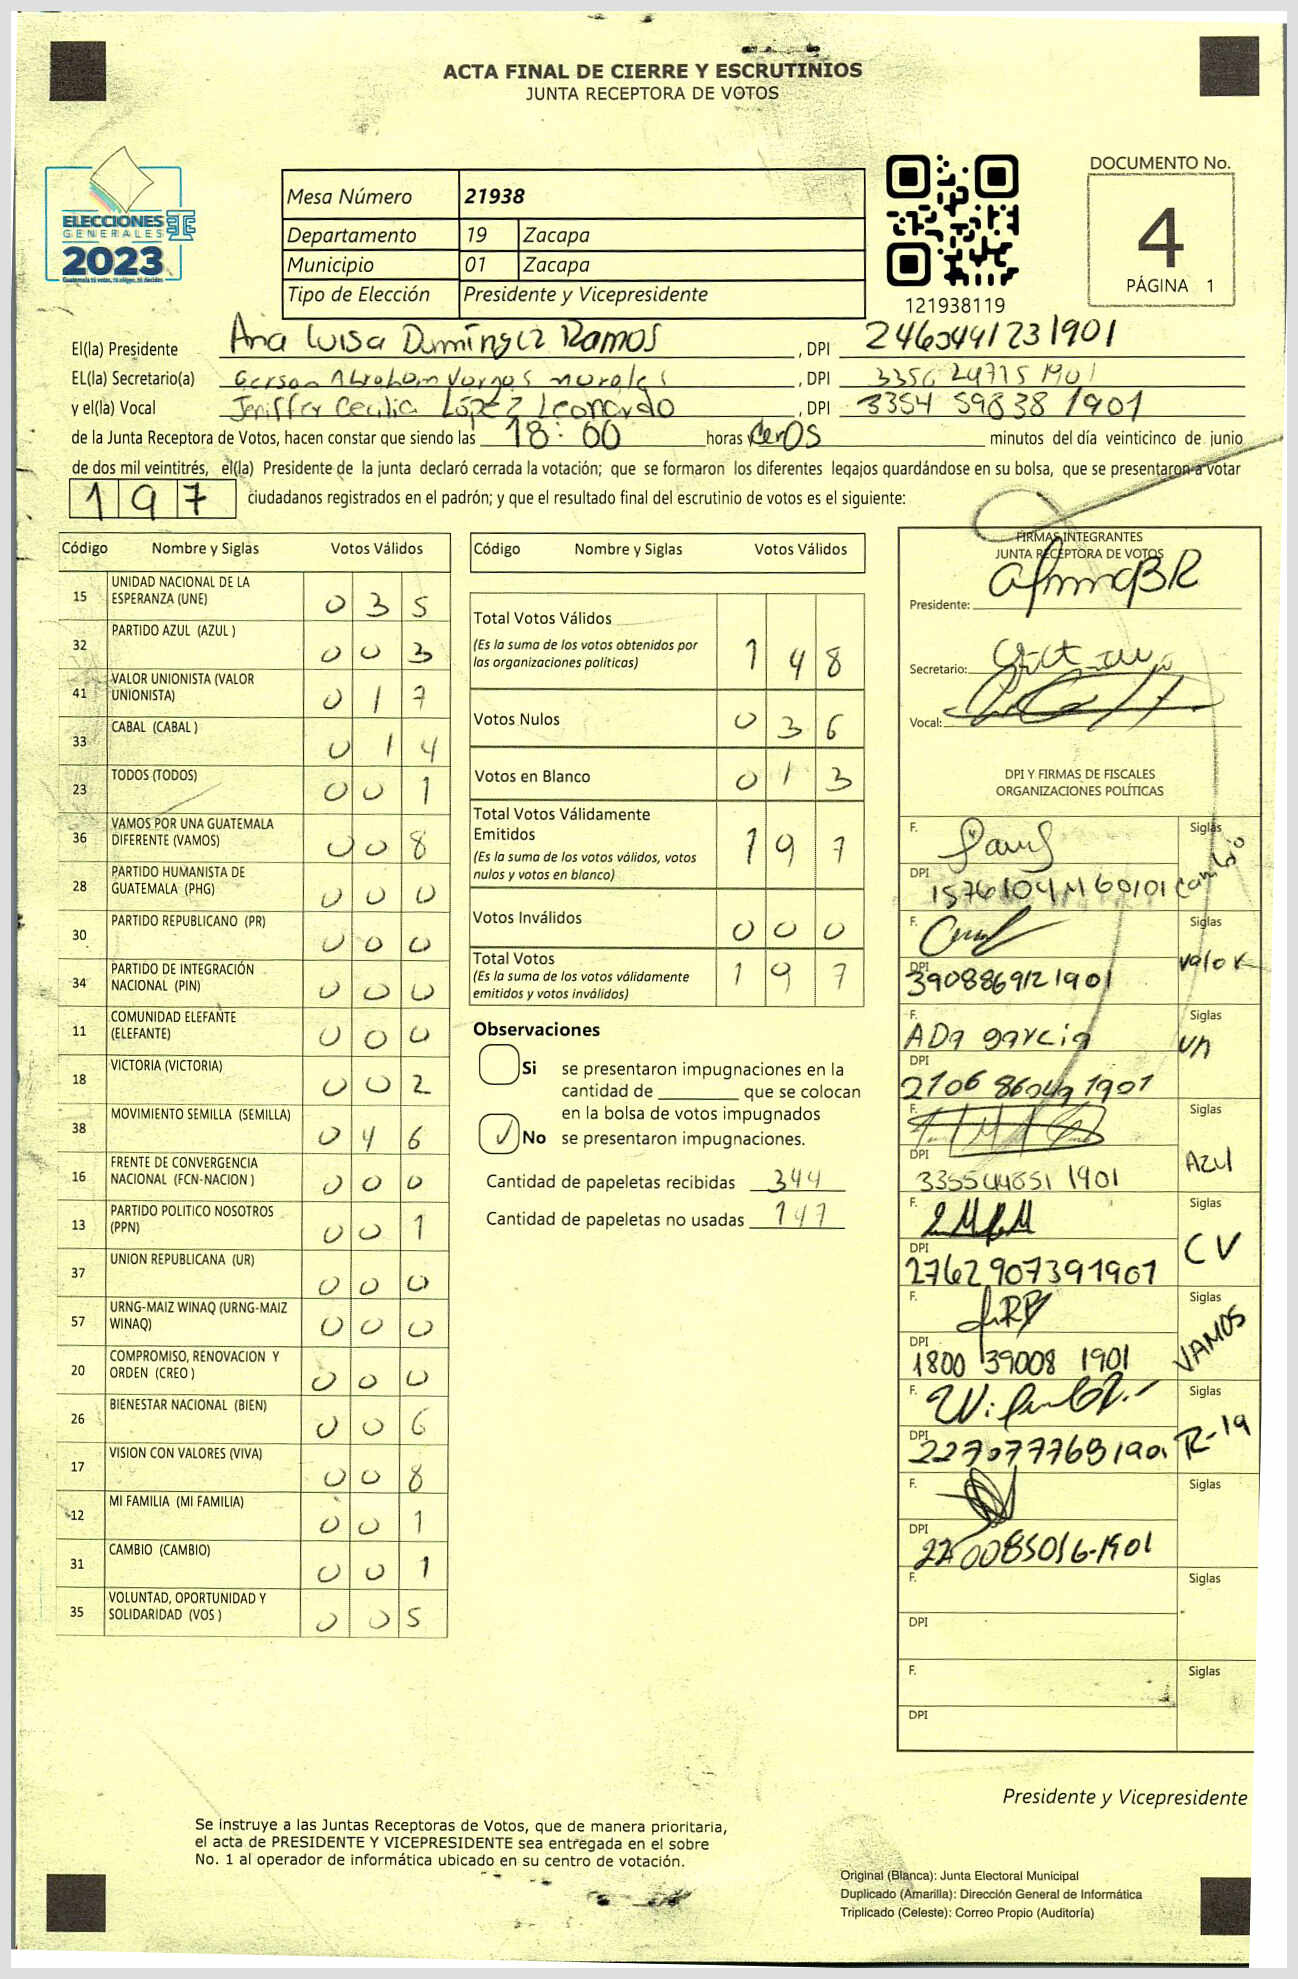 ACTA FINAL DE CIERRE Y ESCRUTINIOS
JUNTA RECEPTORA DE VOTOS
ELECCIONES
GENERALES
2023
Mesa Número 21938
Departamento 19 Zacapa
Municipio 01 Zacapa
Tipo de Elección Presidente y Vicepresidente
121938119
DOCUMENTO No.
4
PÁGINA 1
El(la) Presidente Ana Luisa Ramos , DPI 2460441231901
EL(la) Secretario(a) Gerson Abraham Vargas morales , DPI
y el(la) Vocal Jeniffer Cecilia López Leonardo , DPI 3354 59838 1901
de la Junta Receptora de Votos, hacen constar que siendo las 18:00 horas y cerOS minutos del día veinticinco de junio
de dos mil veintitrés, el(la) Presidente de la junta declaró cerrada la votación; que se formaron los diferentes legajos guardándose en su bolsa, que se presentaron a votar
197 ciudadanos registrados en el padrón; y que el resultado final del escrutinio de votos es el siguiente:
Código Nombre y Siglas Votos Válidos
15 UNIDAD NACIONAL DE LA
ESPERANZA (UNE) 0 3 5
32 PARTIDO AZUL (AZUL ) 0 0 3
41 VALOR UNIONISTA (VALOR
UNIONISTA) 0 1 7
33 CABAL (CABAL ) 0 1 4
23 TODOS (TODOS) 0 0 1
36 VAMOS POR UNA GUATEMALA
DIFERENTE (VAMOS) 0 0 8
28 PARTIDO HUMANISTA DE
GUATEMALA (PHG) 0 0 0
30 PARTIDO REPUBLICANO (PR) 0 0 0
34 PARTIDO DE INTEGRACIÓN
NACIONAL (PIN) 0 0 0
11 COMUNIDAD ELEFANTE
(ELEFANTE) 0 0 0
18 VICTORIA (VICTORIA) 0 0 2
38 MOVIMIENTO SEMILLA (SEMILLA) 0 4 6
16 FRENTE DE CONVERGENCIA
NACIONAL (FCN-NACION ) 0 0 0
13 PARTIDO POLITICO NOSOTROS
(PPN) 0 0 1
37 UNION REPUBLICANA (UR) 0 0 0
57 URNG-MAIZ WINAQ (URNG-MAIZ
WINAQ) 0 0 0
20 COMPROMISO, RENOVACION Y
ORDEN (CREO ) 0 0 0
26 BIENESTAR NACIONAL (BIEN) 0 0 6
17 VISION CON VALORES (VIVA) 0 0 8
12 MI FAMILIA (MI FAMILIA) 0 0 1
31 CAMBIO (CAMBIO) 0 0 1
35 VOLUNTAD, OPORTUNIDAD Y
SOLIDARIDAD (VOS ) 0 0 5
Código Nombre y Siglas Votos Válidos
Total Votos Válidos
(Es la suma de los votos obtenidos por
las organizaciones políticas) 1 4 8
Votos Nulos 0 3 6
Votos en Blanco 0 1 3
Total Votos Válidamente
Emitidos
(Es la suma de los votos válidos, votos
nulos y votos en blanco) 1 9 7
Votos Inválidos 0 0 0
Total Votos
(Es la suma de los votos válidamente
emitidos y votos inválidos) 1 9 7
Observaciones
Si se presentaron impugnaciones en la
cantidad de ________ que se colocan
en la bolsa de votos impugnados
No se presentaron impugnaciones.
Cantidad de papeletas recibidas 344
Cantidad de papeletas no usadas 147
FIRMAS INTEGRANTES
JUNTA RECEPTORA DE VOTOS
Presidente:
Secretario:
Vocal:
DPI Y FIRMAS DE FISCALES
ORGANIZACIONES POLÍTICAS
F. Siglas
DPI cambio
F. Siglas
valor
DPI 3908869121901
F. ADa garcia Siglas
DPI
2106 86049 1901
F. Siglas
DPI Azul
335544851 1901
F. Siglas
DPI CV
2762907391901
F. Siglas
DPI VAMOS
1800 39008 1901
F. Siglas
DPI R-19
2270777681901
F. Siglas
DPI
220085016-1901
F. Siglas
DPI
F. Siglas
DPI
Presidente y Vicepresidente
Se instruye a las Juntas Receptoras de Votos, que de manera prioritaria,
el acta de PRESIDENTE Y VICEPRESIDENTE sea entregada en el sobre
No. 1 al operador de informática ubicado en su centro de votación.
Original (Blanca): Junta Electoral Municipal
Duplicado (Amarilla): Dirección General de Informática
Triplicado (Celeste): Correo Propio (Auditoría)